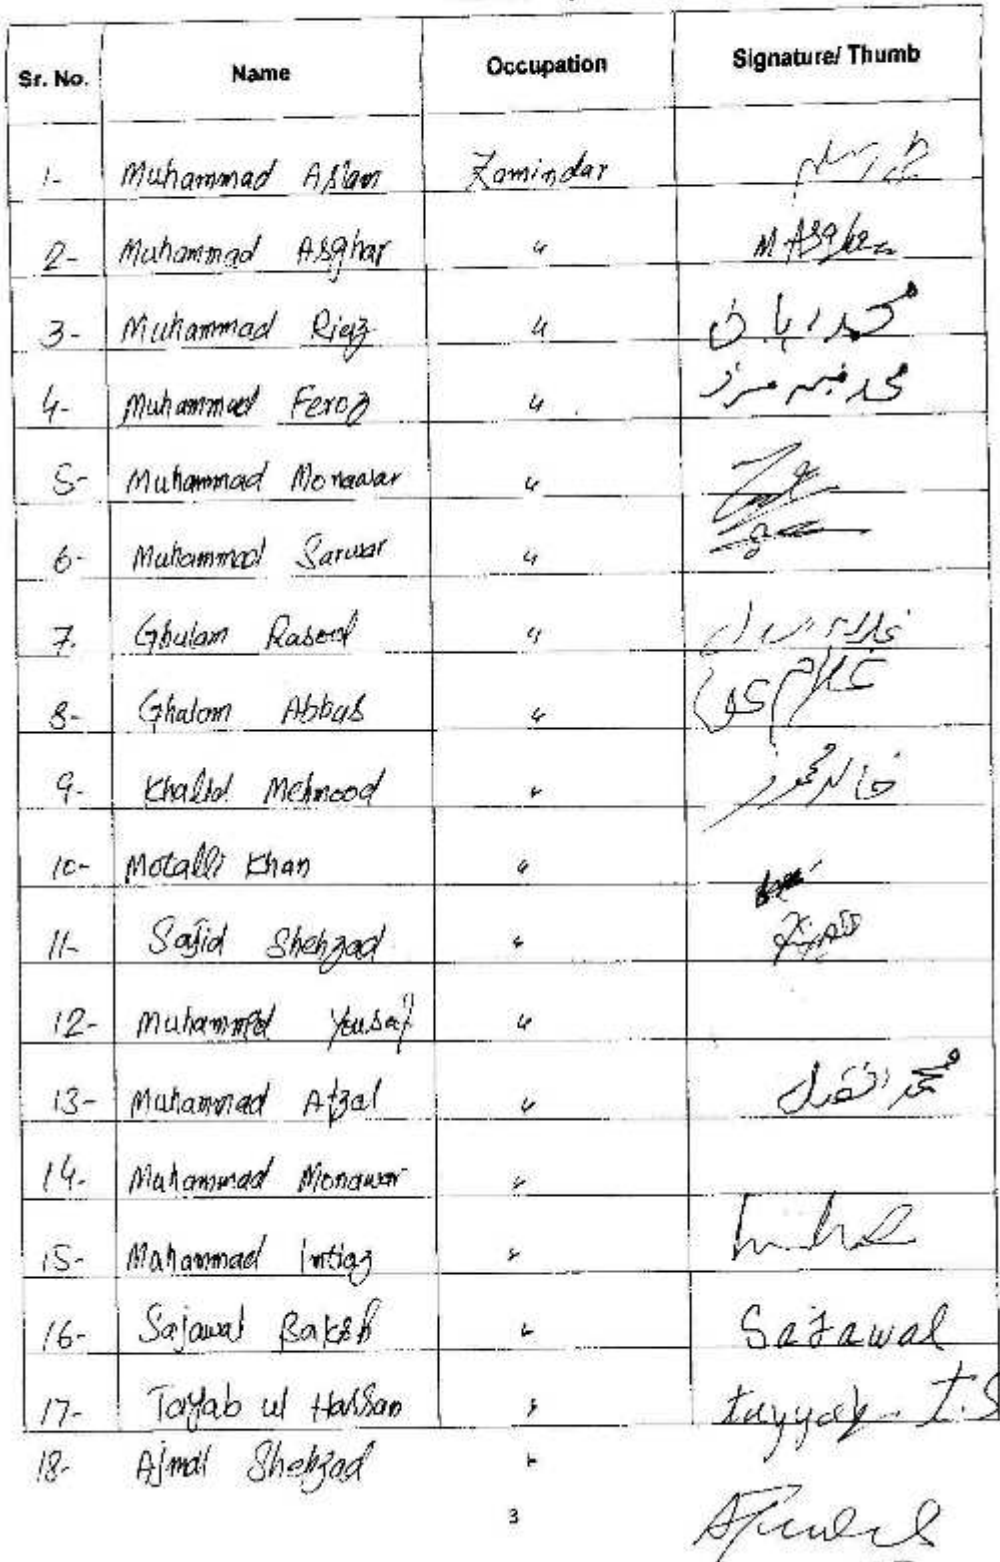 Sr. No. Name Occupation Signature/ Thumb
1- Muhammad Aslam Zamindar
2- Muhammad Asghar " M Asghar
3- Muhammad Riaz " محمد ریاض
4- Muhammad Feroz " محمد فیروز
5- Muhammad Monawar "
6- Muhammad Sarwar "
7. Ghulam Rasool " غلام رسول
8- Ghulam Abbas " غلام عباس
9- Khalid Mehmood " خالد محمود
10- Motalli Khan "
11- Sajid Shehzad "
12- Muhammad Yousaf "
13- Muhammad Afzal " محمد افضل
14- Muhammad Monawar "
15- Muhammad Imtiaz "
16- Sajawal Baksh " Sajawal
17- Tayab ul Hassan " tayyab - T.S
18- Ajmal Shehzad "
3